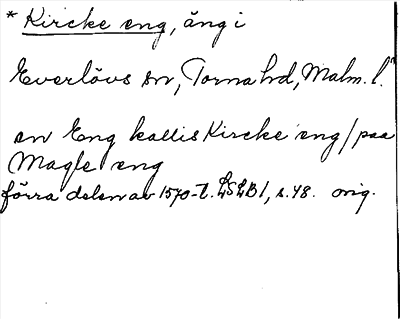 * Kircke eng, äng i
Everlövs sn, Torna hd, Malm. l.
en Eng kallis Kircke eng / paa
Magle eng
förra delen av 1570-t. LSLB 1, s. 48. orig.